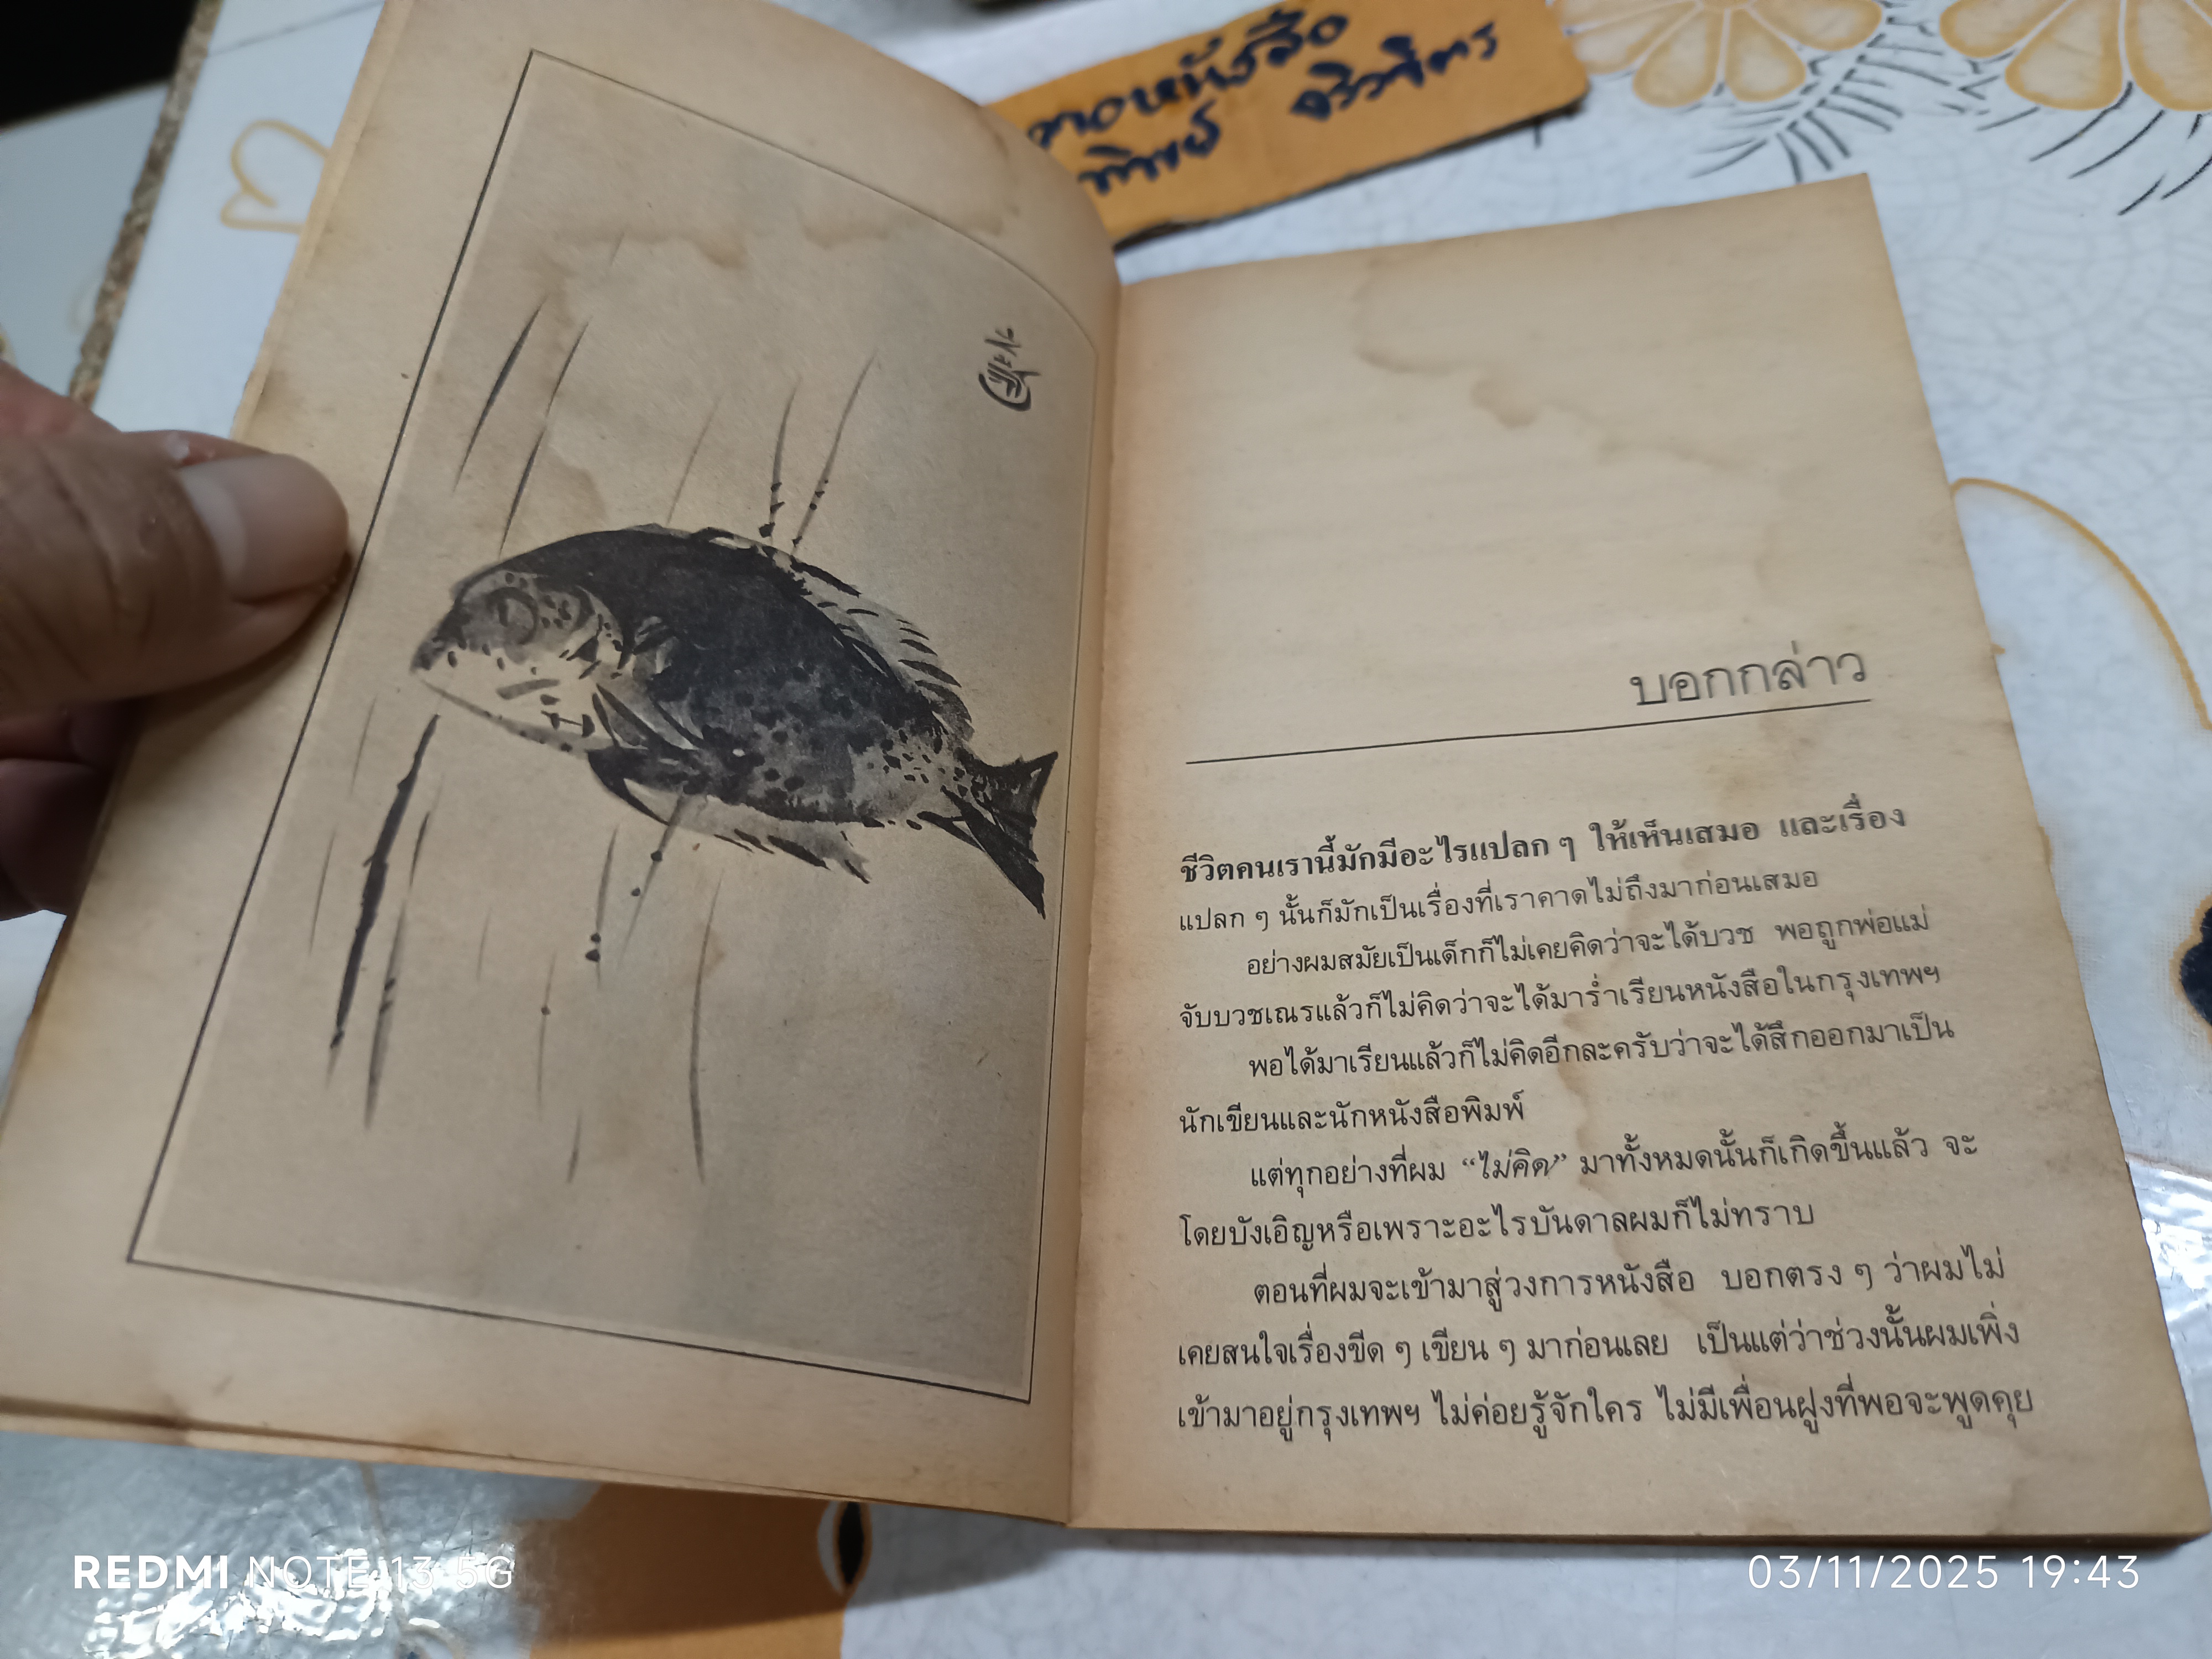 บอกกล่าว
ชีวิตคนเรานี้มักมีอะไรแปลก ๆ ให้เห็นเสมอ และเรื่อง
แปลก ๆ นั้นก็มักเป็นเรื่องที่เราคาดไม่ถึงมาก่อนเสมอ
อย่างผมสมัยเป็นเด็กก็ไม่เคยคิดว่าจะได้บวช พอถูกพ่อแม่
จับบวชเณรแล้วก็ไม่คิดว่าจะได้มาร่ำเรียนหนังสือในกรุงเทพฯ
พอได้มาเรียนแล้วก็ไม่คิดอีกละครับว่าจะได้สึกออกมาเป็น
นักเขียนและนักหนังสือพิมพ์
แต่ทุกอย่างที่ผม “ไม่คิด” มาทั้งหมดนั้นก็เกิดขึ้นแล้ว จะ
โดยบังเอิญหรือเพราะอะไรบันดาลผมก็ไม่ทราบ
ตอนที่ผมจะเข้ามาสู่วงการหนังสือ บอกตรง ๆ ว่าผมไม่
เคยสนใจเรื่องขีด ๆ เขียน ๆ มาก่อนเลย เป็นแต่ว่าช่วงนั้นผมเพิ่ง
เข้ามาอยู่กรุงเทพฯ ไม่ค่อยรู้จักใคร ไม่มีเพื่อนฝูงที่พอจะพูดคุย
REDMI NOTE 13 5G
03/11/2025 19:43